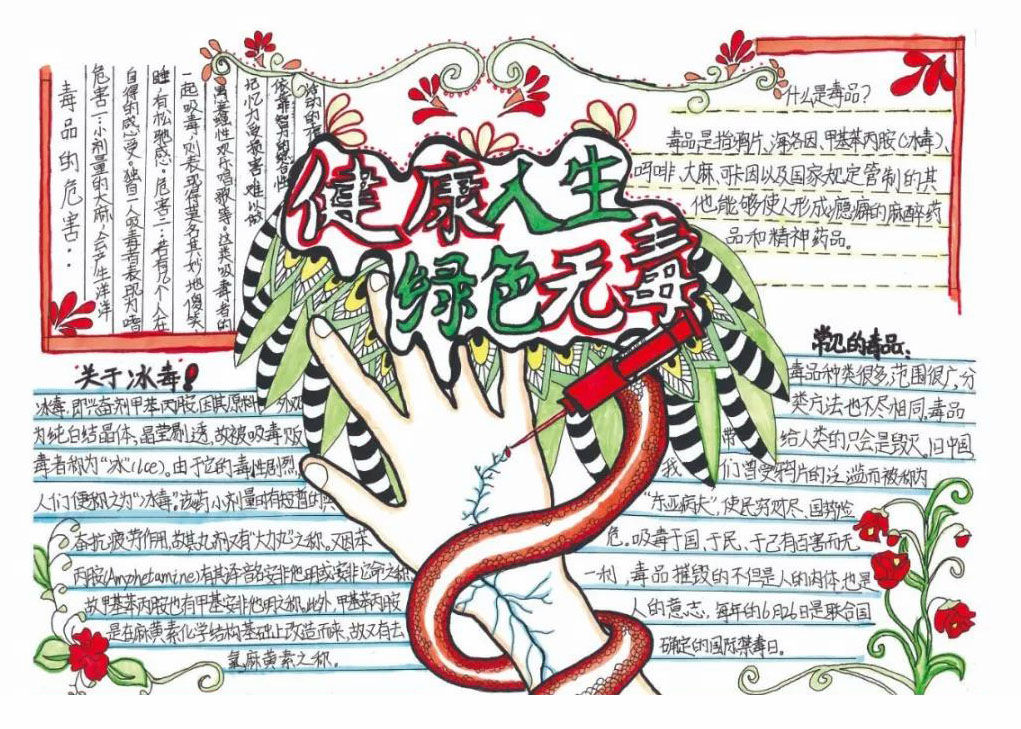 健康人生
绿色无毒
毒品的危害：
危害一：小剂量的大麻，会产生洋洋
自得的感受。独自一人吸毒者表现为嗜
睡，有松弛感。危害二：若有几个人在
一起吸毒，则表现得莫名其妙地傻笑
性欢乐唱歌等。这类吸毒者的
记忆力受损害，难以做
依靠智力的综合性
什么是毒品？
毒品是指鸦片、海洛因、甲基苯丙胺（冰毒）、
吗啡、大麻、可卡因以及国家规定管制的其
他能够使人形成瘾癖的麻醉药
品和精神药品。
关于冰毒！
冰毒，即兴奋剂甲基苯丙胺，因其原料 外观
为纯白结晶体，晶莹剔透，故被吸毒贩
毒者称为“冰”(Ice)。由于它的毒性剧烈，
人们便称之为“冰毒”。该药小剂量时有短暂的兴
奋抗疲劳作用，故其丸剂又有“大力丸”之称。又因苯
丙胺(Amphetamine)有其译音名安非他明或安非 命之称
故甲基苯丙胺也有甲基安非他明之称。此外，甲基苯丙胺
是在麻黄素化学结构基础上改造而来，故又有去
氧麻黄素之称。
常见的毒品：
毒品种类很多，范围很广，分
类方法也不尽相同，毒品
带 给人类的只会是毁灭，旧中国
我 们曾受鸦片的泛滥而被称为
“东亚病夫”，使民穷财尽、国势险
危。吸毒于国、于民、于己有百害而无
一利，毒品摧毁的不但是人的肉体也是
人的意志，每年的6月26日是联合国
确定的国际禁毒日。